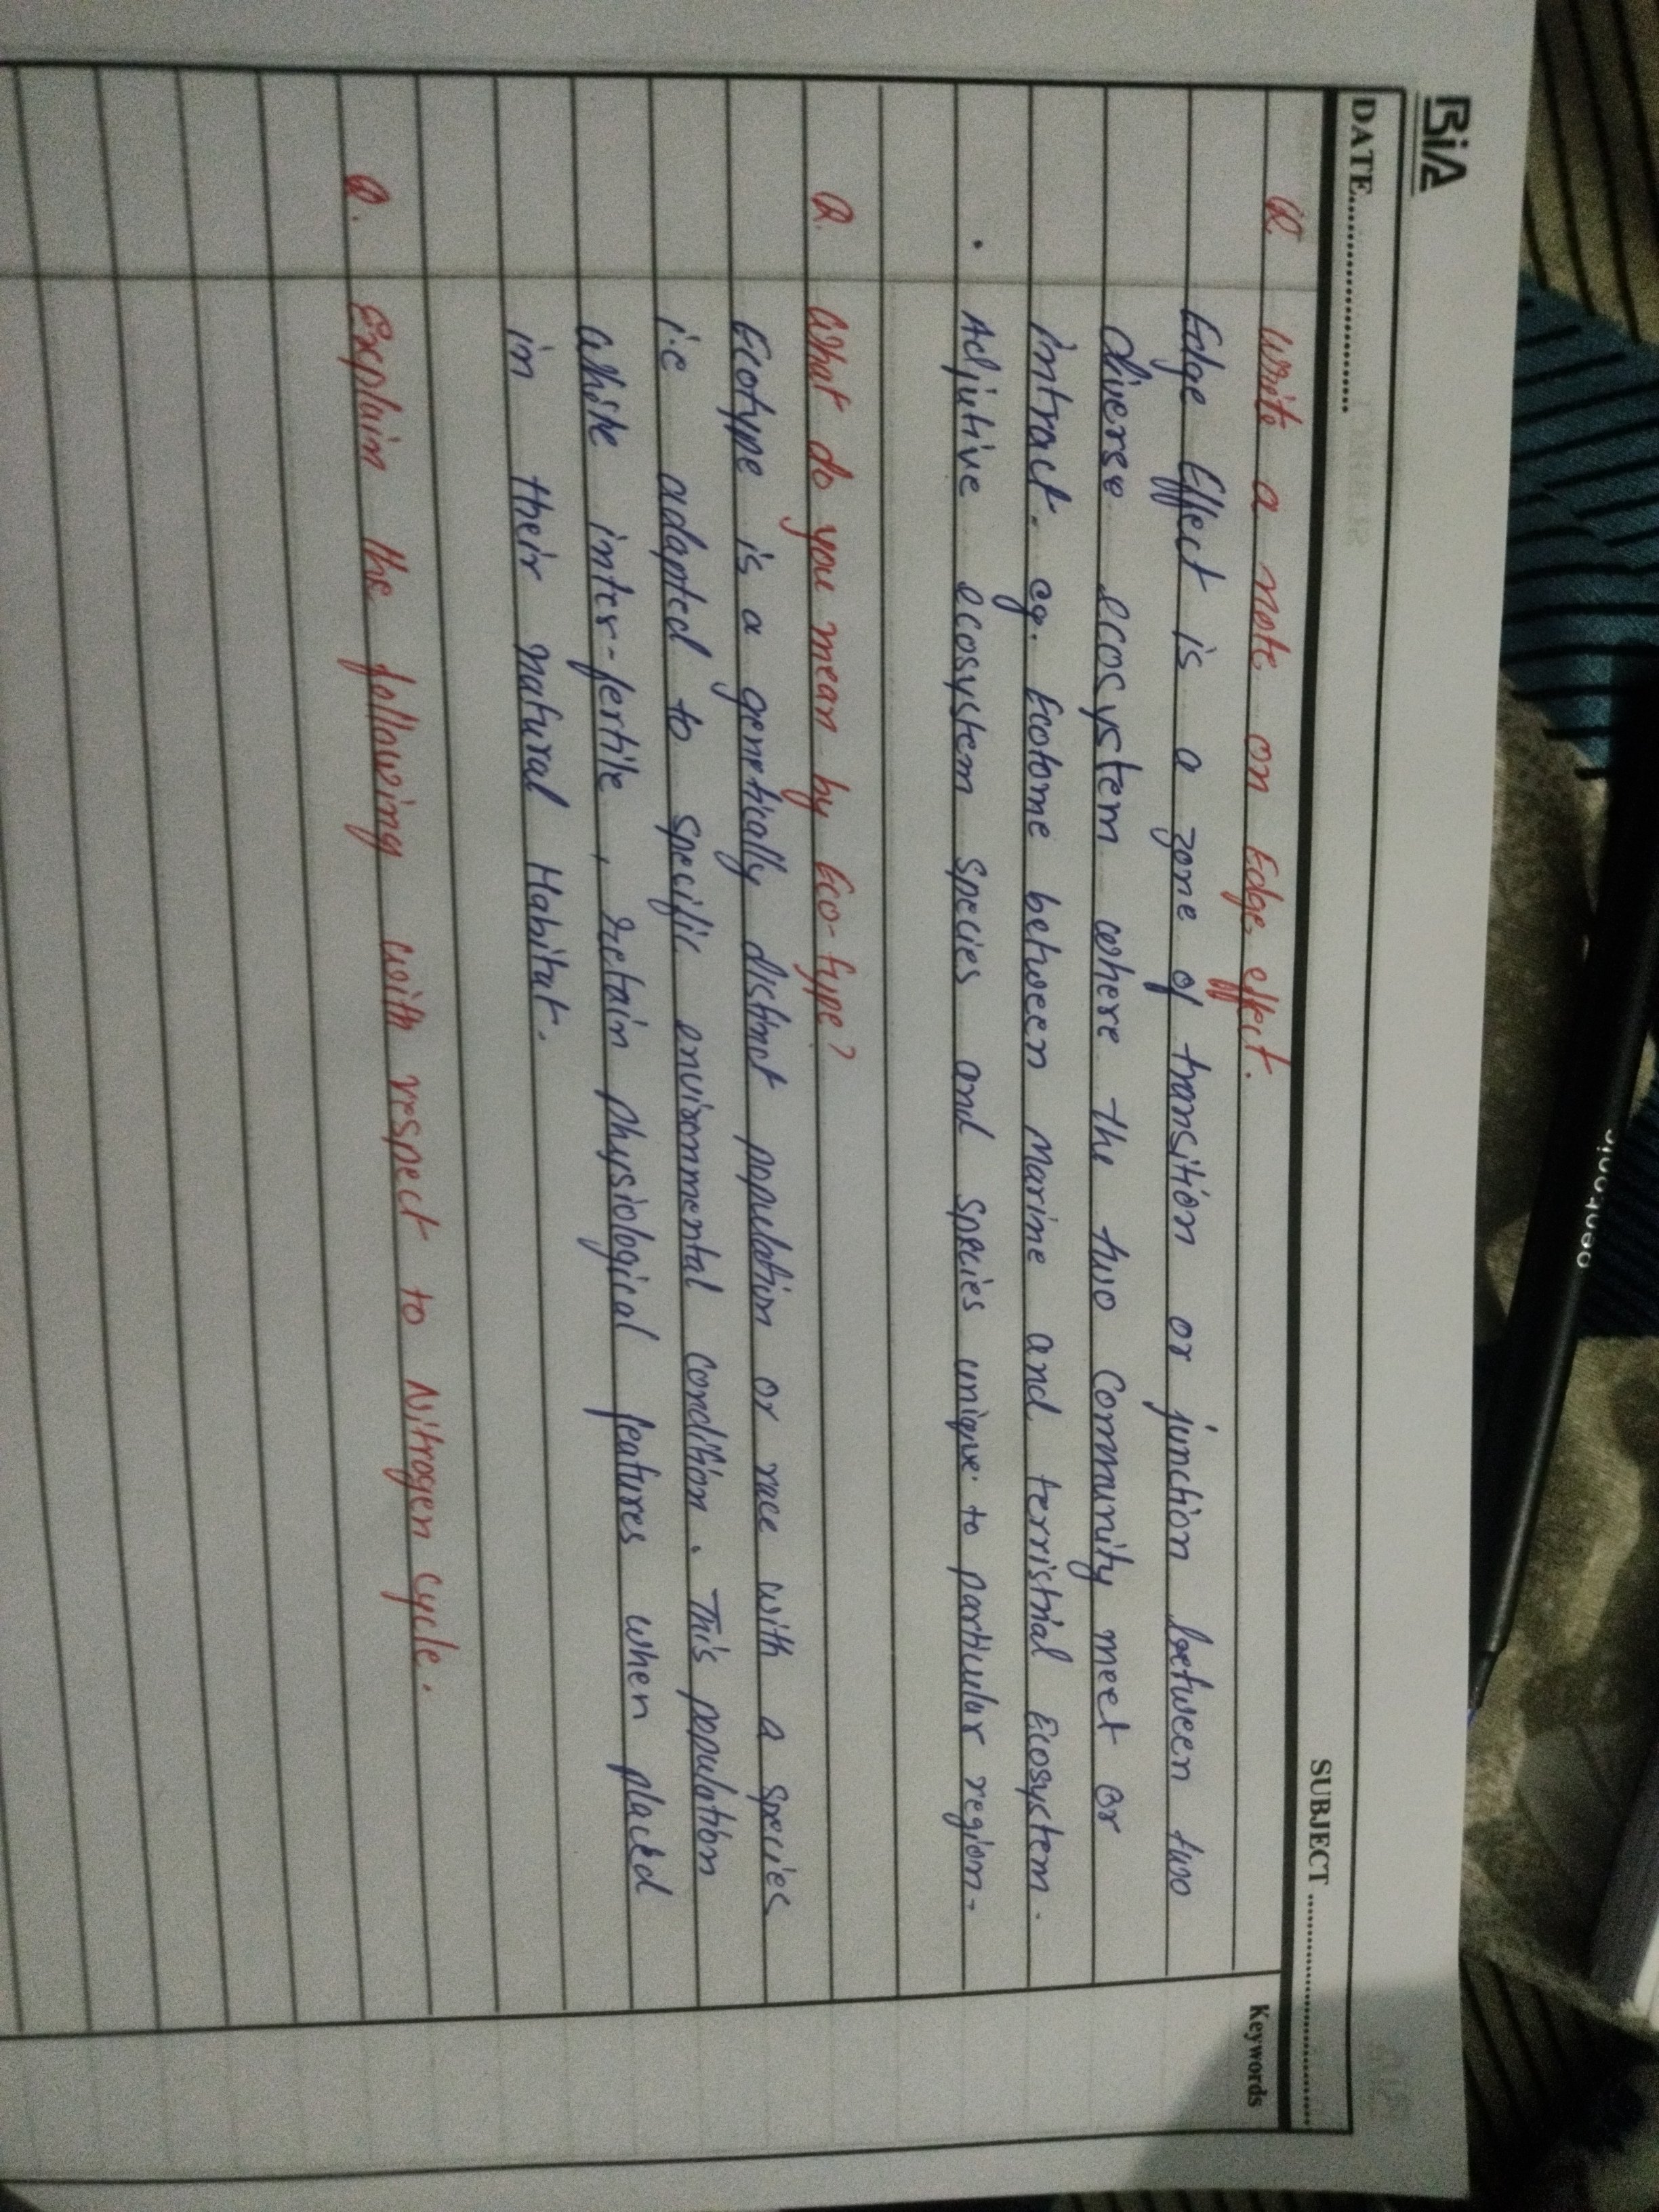 BiA
DATE........................ SUBJECT ........................
Keywords
Q. write a note on Edge effect.
Edge Effect is a zone of transition or junction between two
diverse ecosystem where the two community meet or
intract. eg. Ecotome between Marine and terristrial Ecosystem.
Adjutive ecosystem species and species unique to particular region.
Q. What do you mean by Eco-type?
Ecotype is a genetically distinct population or race with a species
i.e adapted to specific environmental condition. This population
while inter-fertile, retain physiological features when placed
in their natural Habitat.
Q. Explain the following with respect to Nitrogen cycle.
pentonic